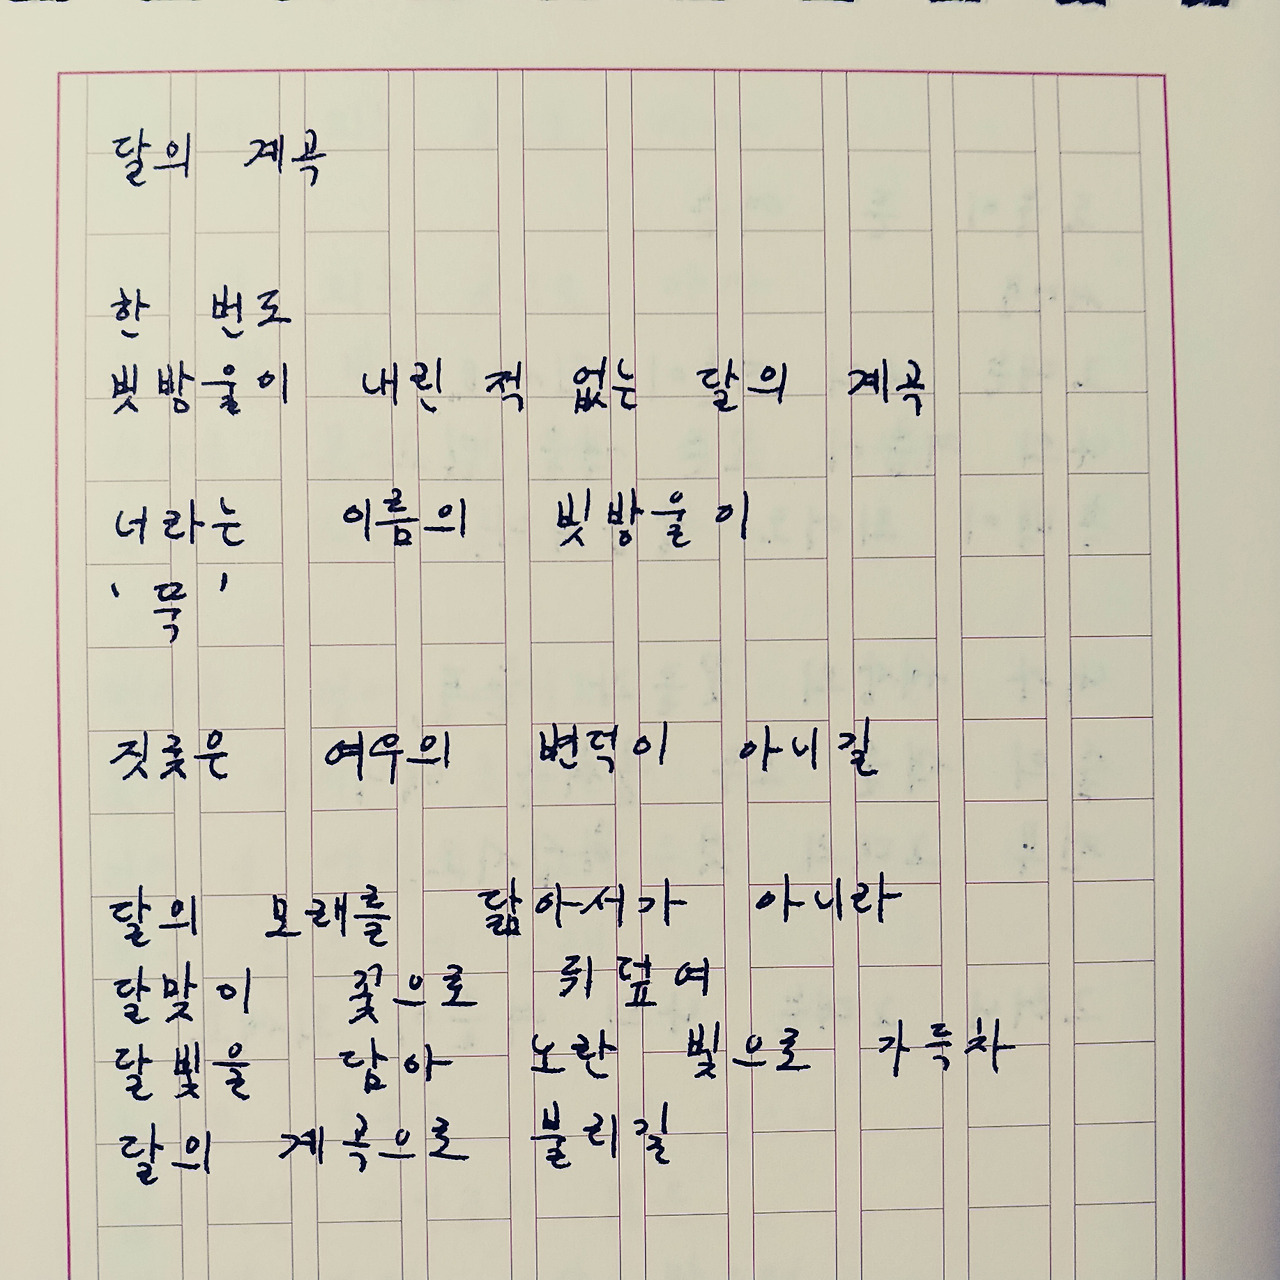 달의 계곡
한 번도
빗방울이 내린 적 없는 달의 계곡
너라는 이름의 빗방울이
'뚝'
짓궂은 여우의 변덕이 아니길
달의 모래를 닮아서가 아니라
달맞이 꽃으로 뒤덮여
달빛을 담아 노란 빛으로 가득차
달의 계곡으로 불리길